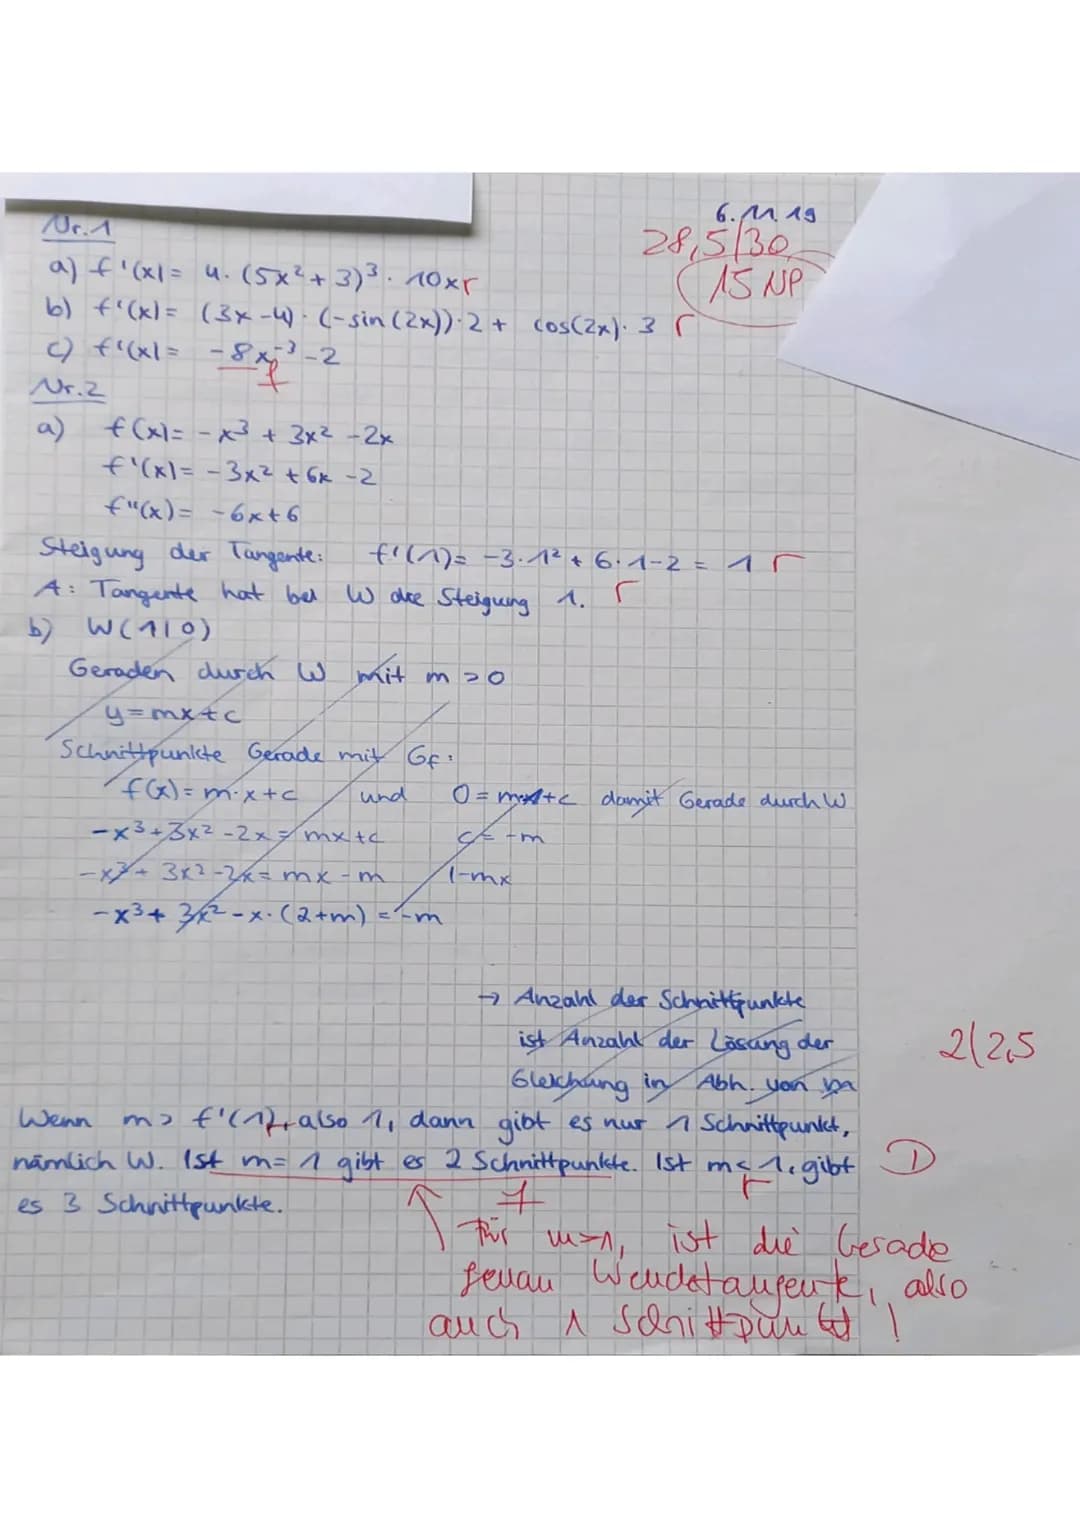 6.11.19
28,5/30
15 NP
Nr.1
a) f'(x)= 4·(5x²+3)³·10x r
b) f'(x)= (3x-4)·(-sin(2x))·2+ cos(2x)·3 r
c) f'(x)= -8x⁻³-2
f
Nr.2
a) f(x)= -x³+3x²-2x
f'(x)= -3x²+6x-2
f''(x)= -6x+6
Steigung der Tangente: f'(1)= -3·1²+6·1-2 = 1 r
A: Tangente hat bei W die Steigung 1. r
b) W(1|0)
Geraden durch W mit m>0
y=mx+c
Schnittpunkte Gerade mit Gf:
f(x)=m·x+c und 0=m·1+c damit Gerade durch W
-x³+3x²-2x=mx+c c=-m
-x³+3x²-2x=mx-m |-mx
-x³+3x²-x·(2+m)=-m
→ Anzahl der Schnittpunkte
ist Anzahl der Lösung der
Gleichung in Abh. von m
2/2,5
Wenn m> f'(1), also 1, dann gibt es nur 1 Schnittpunkt,
nämlich W. Ist m=1 gibt es 2 Schnittpunkte. Ist m<1, gibt
es 3 Schnittpunkte.
f r
Für m=1, ist die Gerade
genau Wendetangente, also
auch 1 Schnittpunkt!